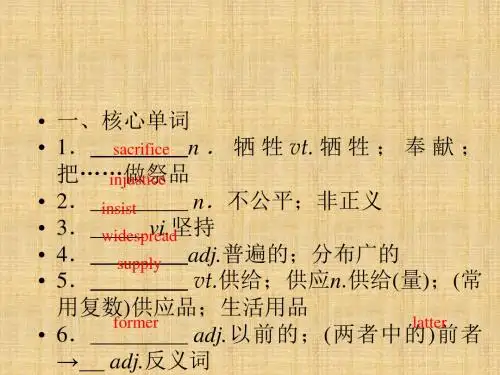 • 一、核心单词
• 1．sacrifice n．牺牲vt.牺牲；奉献；
把……做祭品
injustice
• 2．________ n．不公平；非正义
insist
• 3．______vi.坚持
widespread
• 4．________adj.普遍的；分布广的
supply
• 5．________ vt.供给；供应n.供给(量)；(常
用复数)供应品；生活用品
former latter
• 6．________ adj.以前的；(两者中的)前者
→__ adj.反义词